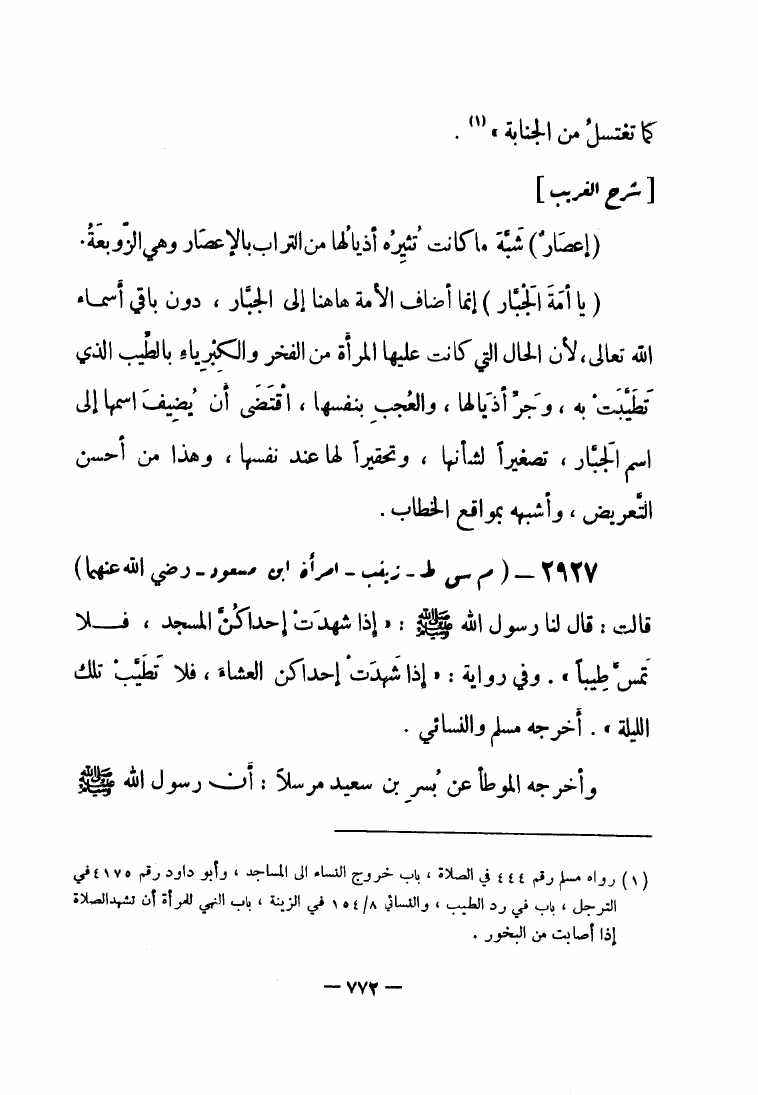 كما تغتسلُ من الجنابة » (١) .
[ شرح الغريب ]
( إعصَارٌ ) شَبَّهَ ماكانت تُثيرُه أذيالُها من التراب بالإعصَار وهي الزَّوبعَةُ.
( يا أمَةَ الجَبَّار ) إنما أضاف الأمة هاهنا إلى الجبَّار ، دون باقي أسماء
الله تعالى، لأن الحال التي كانت عليها المرأة من الفخر والكِبْرِياءِ بالطِّيب الذي
تَطَيَّبَتْ به ، وجَرِّ أذيَالها ، والعُجبِ بنفسها ، اقْتَضَى أن يُضِيفَ اسمها إلى
اسم الجَبَّار ، تصغيراً لشأنها ، وتحقيراً لها عند نفسها ، وهذا من أحسن
التَّعريض ، وأشبهه بمواقع الخطاب .
٢٩٢٧ – ( م س ط - زينب - امرأة ابن مسعود - رضي الله عنهما )
قالت : قال لنا رسول الله ﷺ : « إذا شهدَتْ إحداكُنَّ المسجد ، فــلا
تمَسَّ طِيباً » . وفي رواية : « إذا شَهدَتْ إحداكن العشاءَ ، فلا تَطَيَّبْ تلك
الليلة » . أخرجه مسلم والنسائي .
وأخرجه الموطأ عن بُسرِ بن سعيد مرسلاً : أن رسول الله ﷺ
(١) رواه مسلم رقم ٤٤٤ في الصلاة ، باب خروج النساء الى المساجد ، وأبو داود رقم ٤١٧٥ في
الترجل ، باب في رد الطيب ، والنسائي ٨/ ١٥٤ في الزينة ، باب النهي للمرأة أن تشهد الصلاة
إذا أصابت من البخور .
– ٧٧٢ –